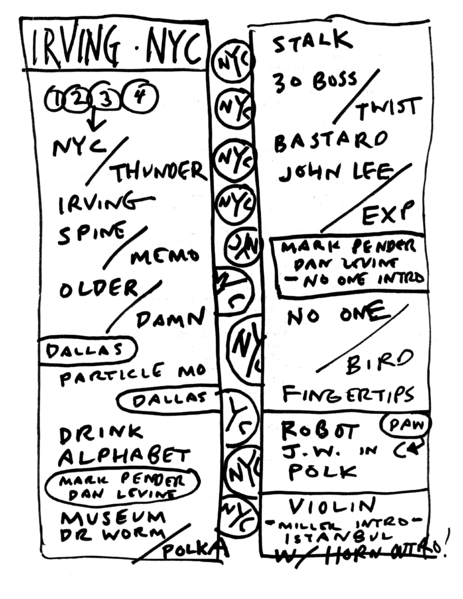 IRVING · NYC
1 2 3 4
NYC /
THUNDER
IRVING
SPINE /
MEMO
OLDER /
DAMN
DALLAS
PARTICLE MO
DALLAS
DRINK
ALPHABET
MARK PENDER
DAN LEVINE
MUSEUM
DR WORM /
POLKA
NYC
NYC
NYC
NYC
NYC
NYC
NYC
NYC
NYC
STALK
30 BOSS /
TWIST
BASTARD
JOHN LEE /
EXP
MARK PENDER
DAN LEVINE
- NO ONE INTRO
NO ONE /
BIRD
FINGERTIPS
ROBOT DAW
J.W. IN
POLK
VIOLIN
- MILLER INTRO -
ISTANBUL
W/ HORN OUTRO!